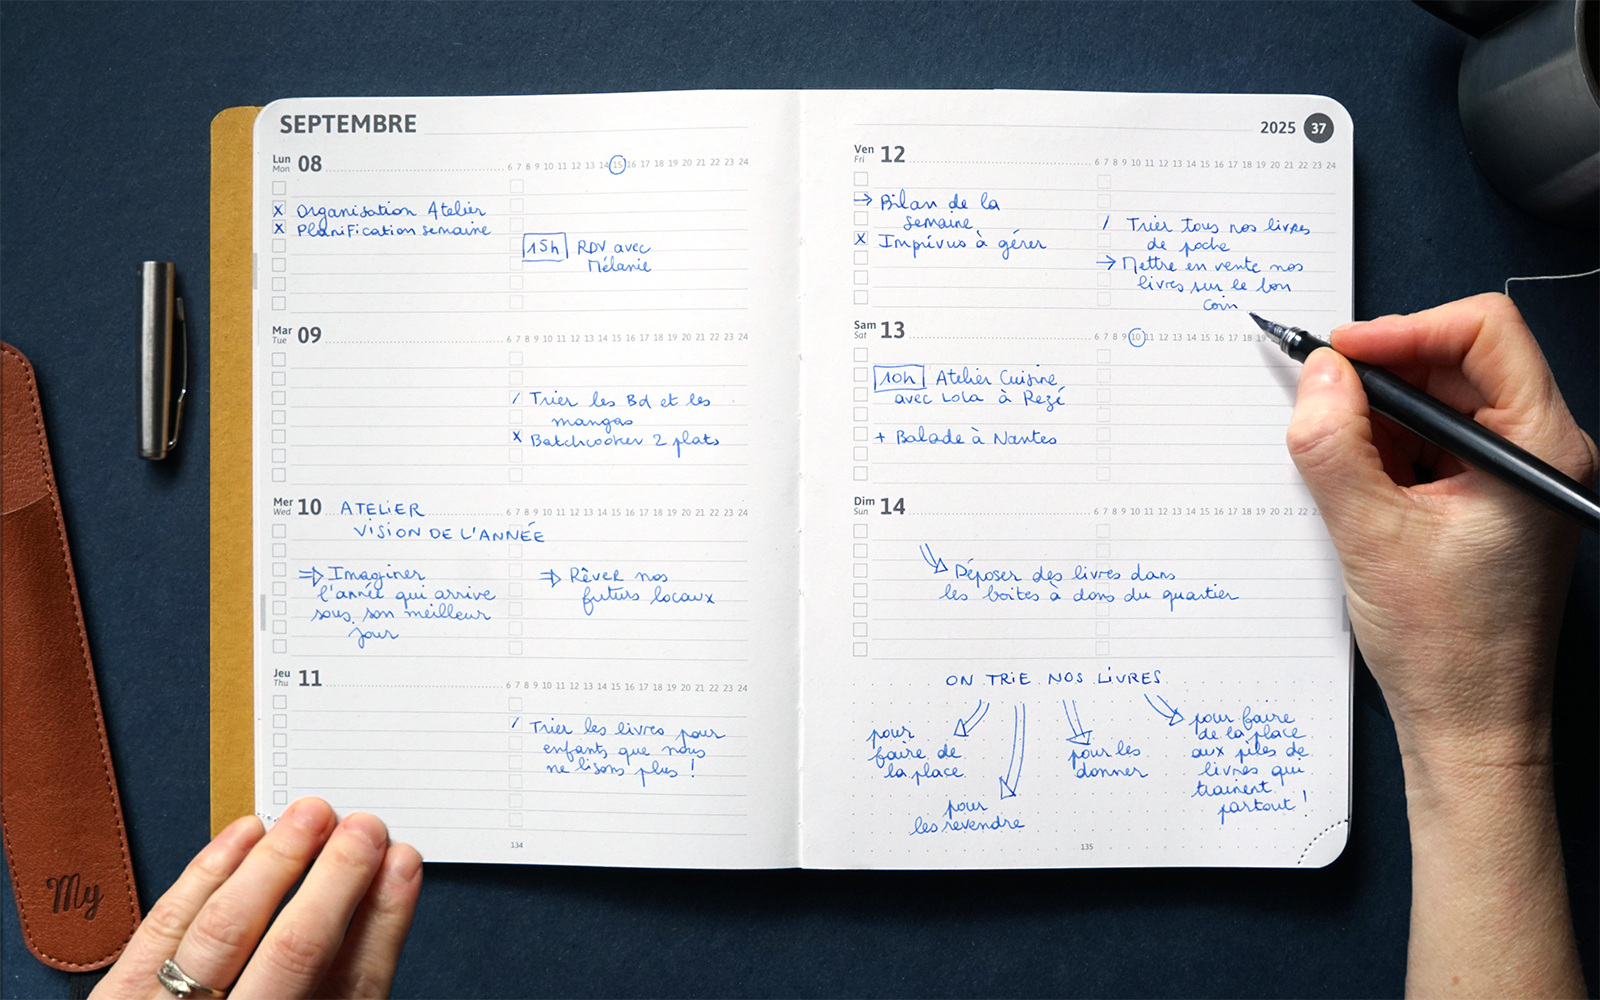 SEPTEMBRE
Lun 08
Mon
6 7 8 9 10 11 12 13 14 15 16 17 18 19 20 21 22 23 24
x Organisation Atelier
x Planification semaine
15h RDV avec
Mélanie
Mar 09
Tue
6 7 8 9 10 11 12 13 14 15 16 17 18 19 20 21 22 23 24
/ Trier les Bd et les
mangas
x Batchcooker 2 plats
Mer 10 ATELIER
Wed
6 7 8 9 10 11 12 13 14 15 16 17 18 19 20 21 22 23 24
VISION DE L'ANNÉE
⇒ Imaginer
l'année qui arrive
sous son meilleur
jour
⇒ Rêver nos
futurs locaux
Jeu 11
Thu
6 7 8 9 10 11 12 13 14 15 16 17 18 19 20 21 22 23 24
/ Trier les livres pour
enfants que nous
ne lisons plus !
134
2025 37
Ven 12
Fri
6 7 8 9 10 11 12 13 14 15 16 17 18 19 20 21 22 23 24
→ Bilan de la
semaine
x Imprévus à gérer
/ Trier tous nos livres
de poche
→ Mettre en vente nos
livres sur le bon
coin
Sam 13
Sat
6 7 8 9 10 11 12 13 14 15 16 17 18 19
10h Atelier Cuisine
avec Lola à Rezé
+ Balade à Nantes
Dim 14
Sun
6 7 8 9 10 11 12 13 14 15 16 17 18 19 20 21 22
Déposer des livres dans
les boîtes à dons du quartier
ON TRIE NOS LIVRES
pour
faire de
la place
pour
les revendre
pour les
donner
pour faire
de la place
aux piles de
livres qui
trainent
partout !
135
My